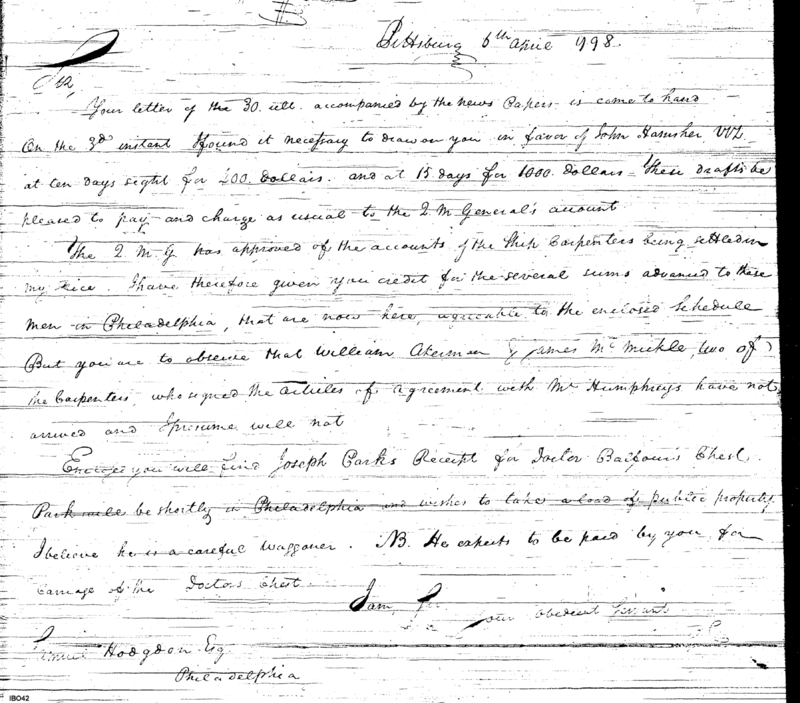 Pittsburg 6th April 1798
Sir,
Your letter of the 30. ult. accompanied by the news Papers is come to hand
On the 3d instant I found it necessary to draw on you in favor of John
at ten days sight for 200. Dollars. and at 15 days for 1000. Dollars - These drafts be
pleased to pay and charge as usual to the Q. M General's account
The Q. M. G has approved of the accounts of the Ship Carpenters being settled in
my I have therefore given you credit for the several sums advanced to these
men in Philadelphia, that are now here, agreeable to the enclosed Schedule
But you are to observe that William Akerman & James McMickle, two of
the Carpenters, who signed the articles of agreement with Mr Humphreys have not
arrived and I presume will not
you will find Joseph Park's Receipt for Doctor Balfour's Chest.
Park will be shortly in Philadelphia and wishes to take a load of public property
I believe he is a careful waggoner. NB. He expects to be paid by you for
Carriage of the Doctors Chest.
I am, Sir
your obedient Servant
Samuel Hodgdon Esq
Philadelphia
IBO42